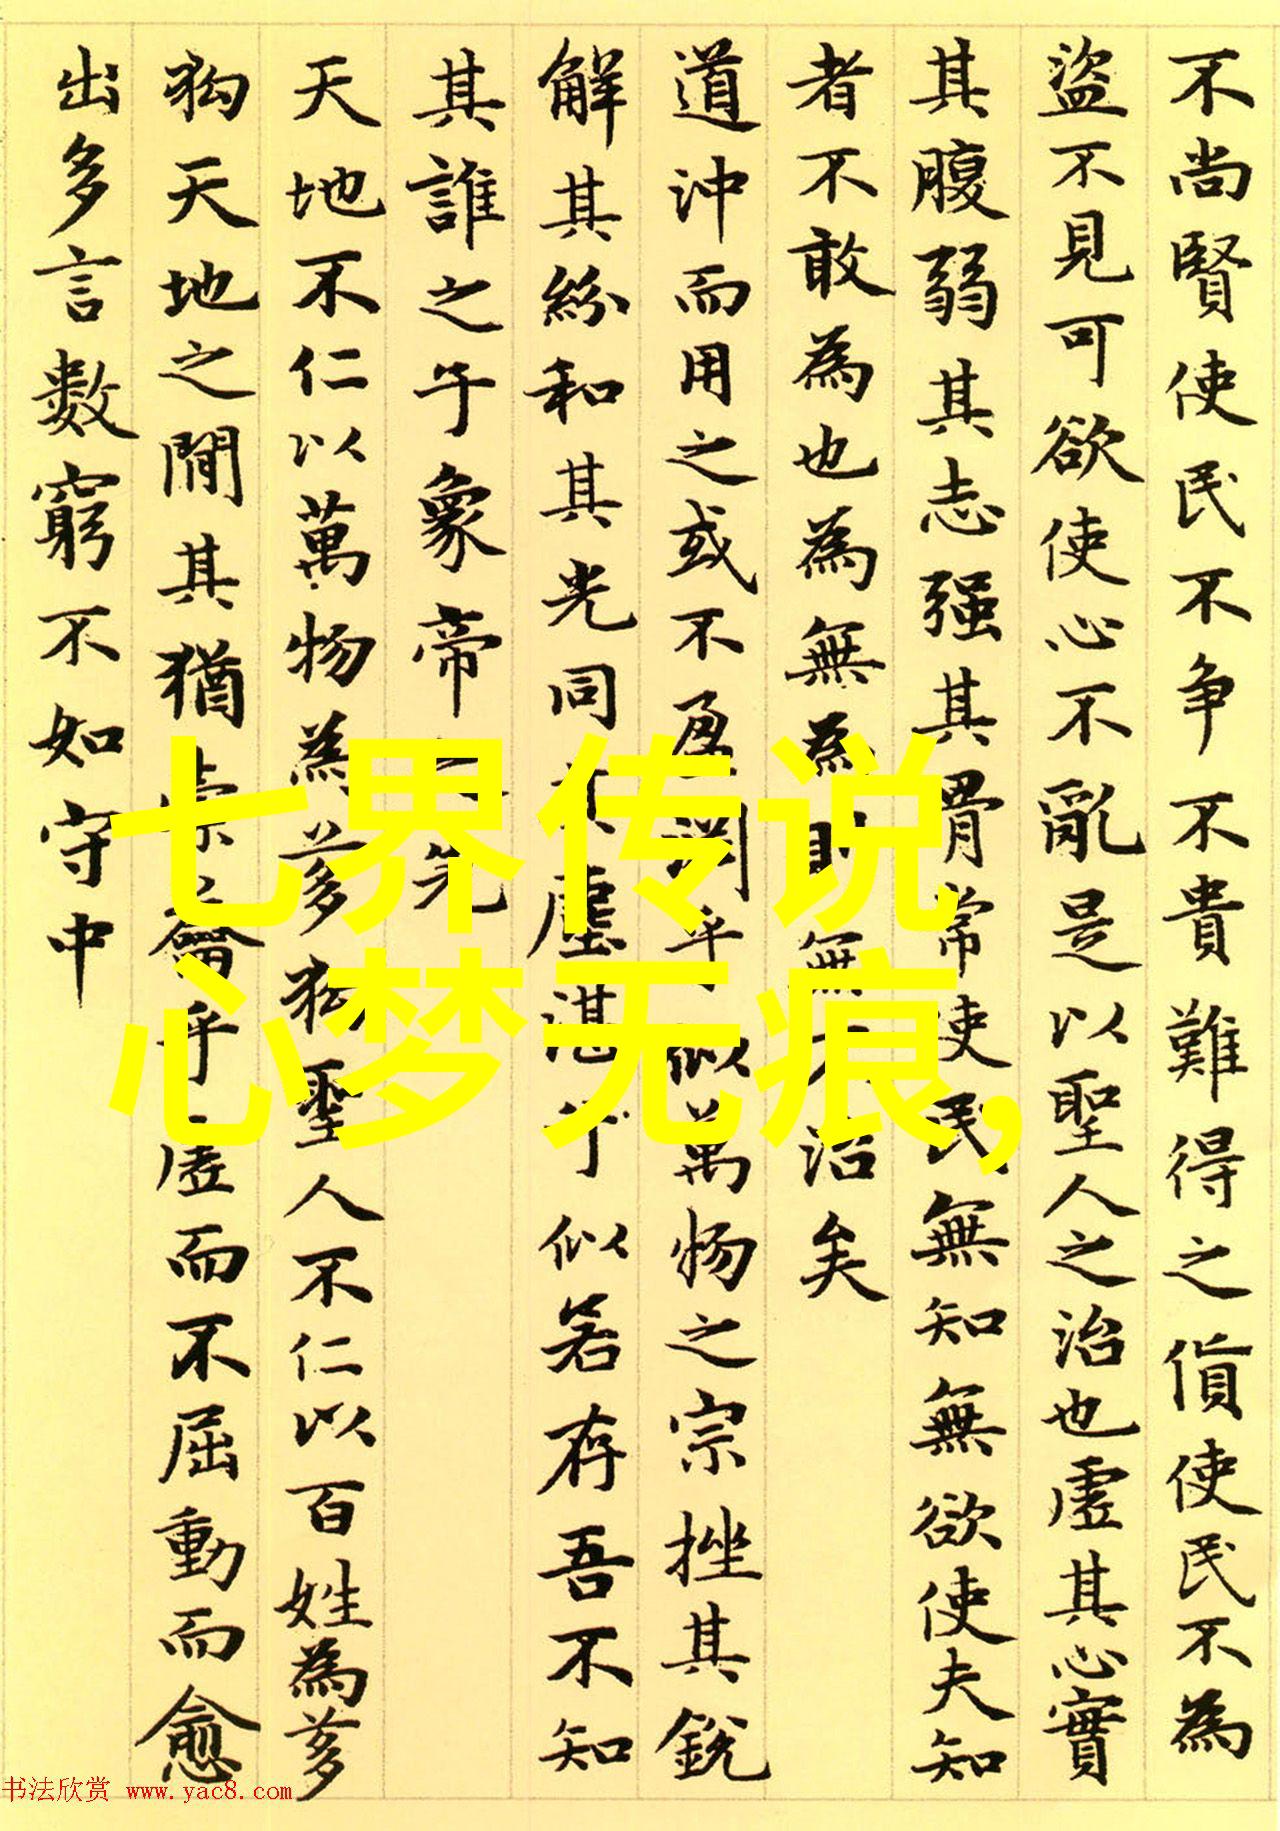 不尚賢使民不争不貴難得之貨使民不為
盜不見可欲使心不亂是以聖人之治也虛其心實
其腹弱其志强其骨常使民無知無欲使夫知
者不敢為也為無為則無不治矣
道沖而用之或不盈淵乎似萬物之宗挫其銳
解其紛和其光同其塵湛乎似若存吾不知
其誰之子象帝之先
天地不仁以萬物為芻狗聖人不仁以百姓為芻
狗天地之間其猶橐籥乎虛而不屈動而愈
出多言數窮不如守中
七界传说
心梦无痕,
书法欣赏 www.yac8.com